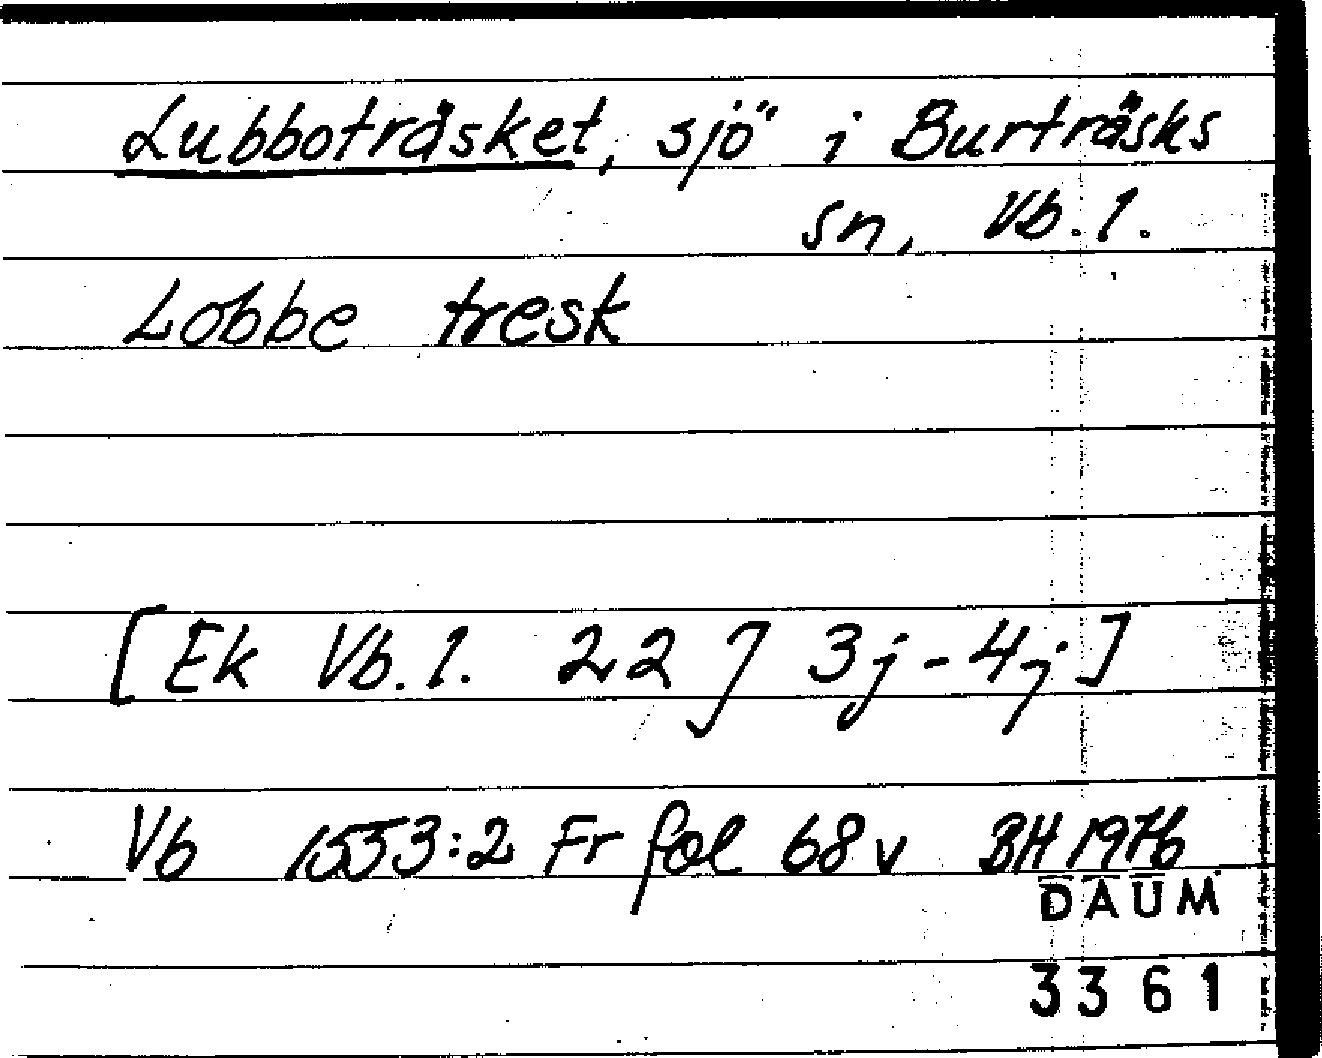 Lubboträsket, sjö i Burträsks
sn, Vb. l.
Lobbe tresk
[Ek Vb. l. 22 J 3j-4j]
Vb 1553:2 Fr fol 68 v BH 1976
DAUM
3361